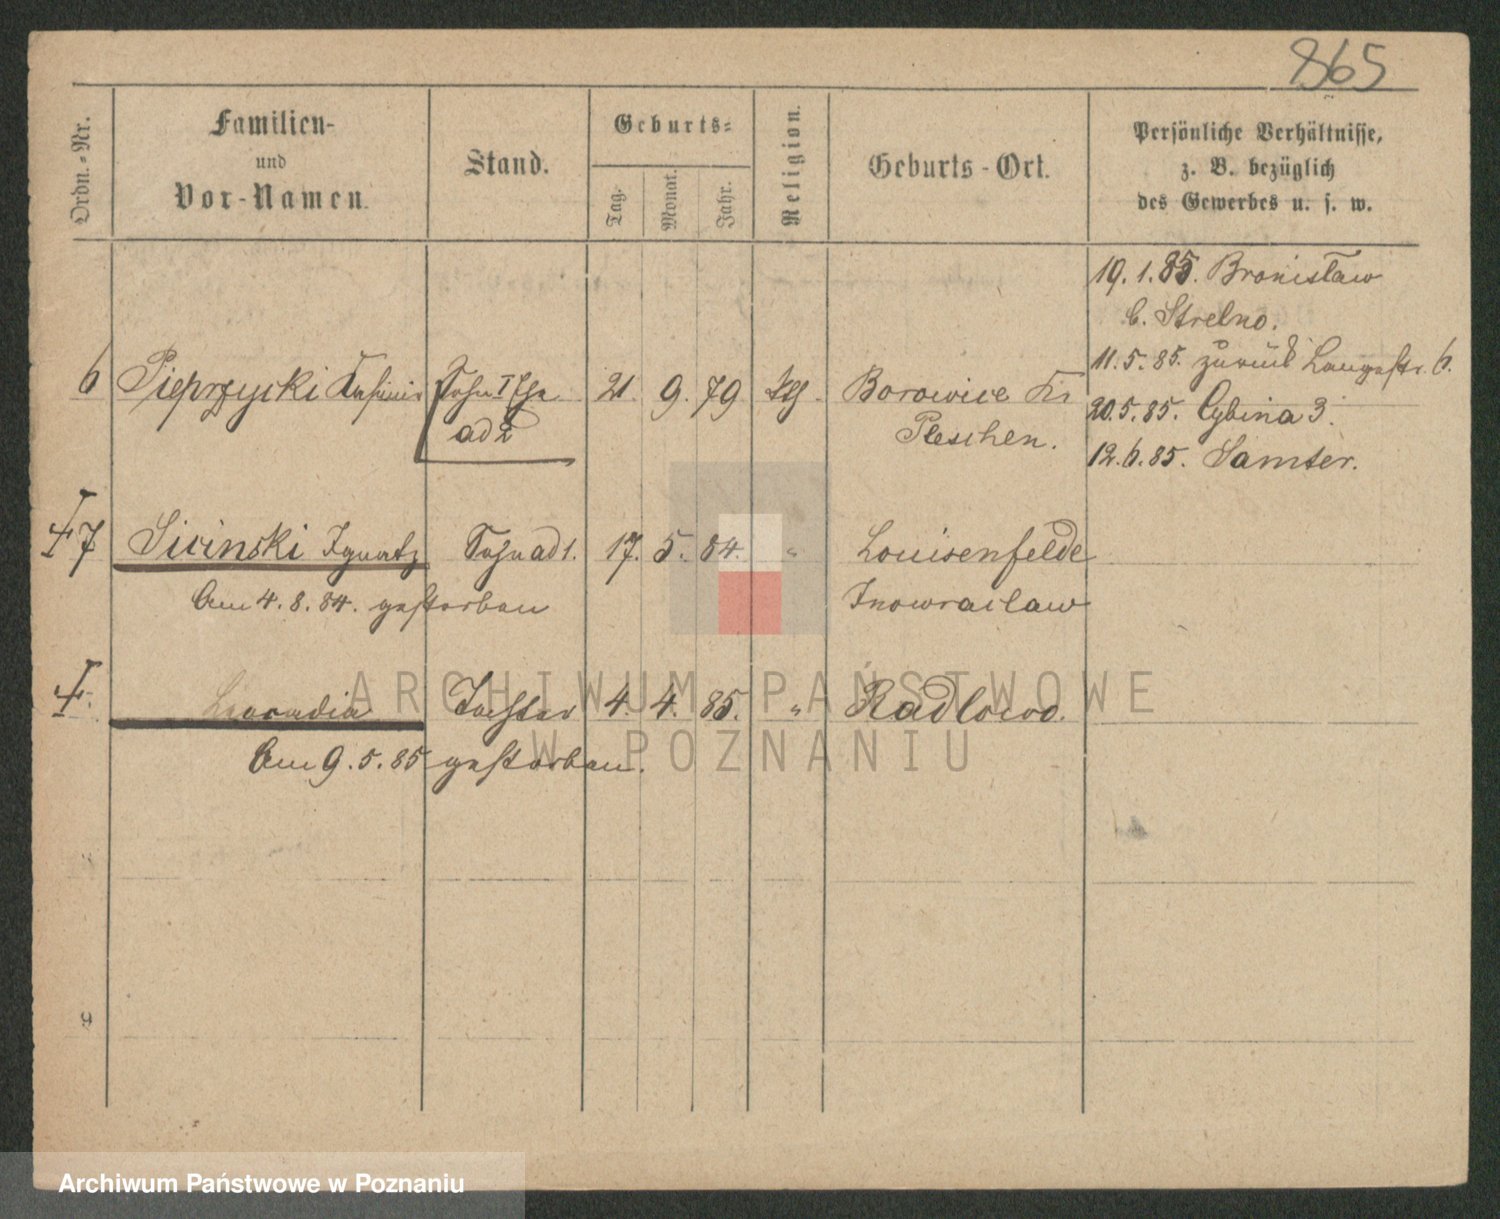 865
Ordn.-Nr.
Familien-
und
Vor-Namen.
Stand.
Geburts-
Tag.
Monat.
Jahr.
Religion.
Geburts-Ort.
Persönliche Verhältnisse,
z. B. bezüglich
des Gewerbes u. s. w.
19. 1. 85. Bronisław
b. Strelno.
11. 5. 85. zurück Langestr. 6.
6 Pieprzycki Kasimir Sohn I Ehe 21. 9. 79 kth. Borowice Kr
ad 2 Pleschen.
20. 5. 85. Cybina 3.
12. 6. 85. Samter.
7 Sicinski Ignatz Sohn ad 1. 17. 5. 84. " Louisenfelde
Am 4. 8. 84. gestorben Inowraclaw
Leocadia Tochter 4. 4. 85. " Radlowo.
Am 9. 5. 85 gestorben.
9
ARCHIWUM PAŃSTWOWE
W POZNANIU
Archiwum Państwowe w Poznaniu